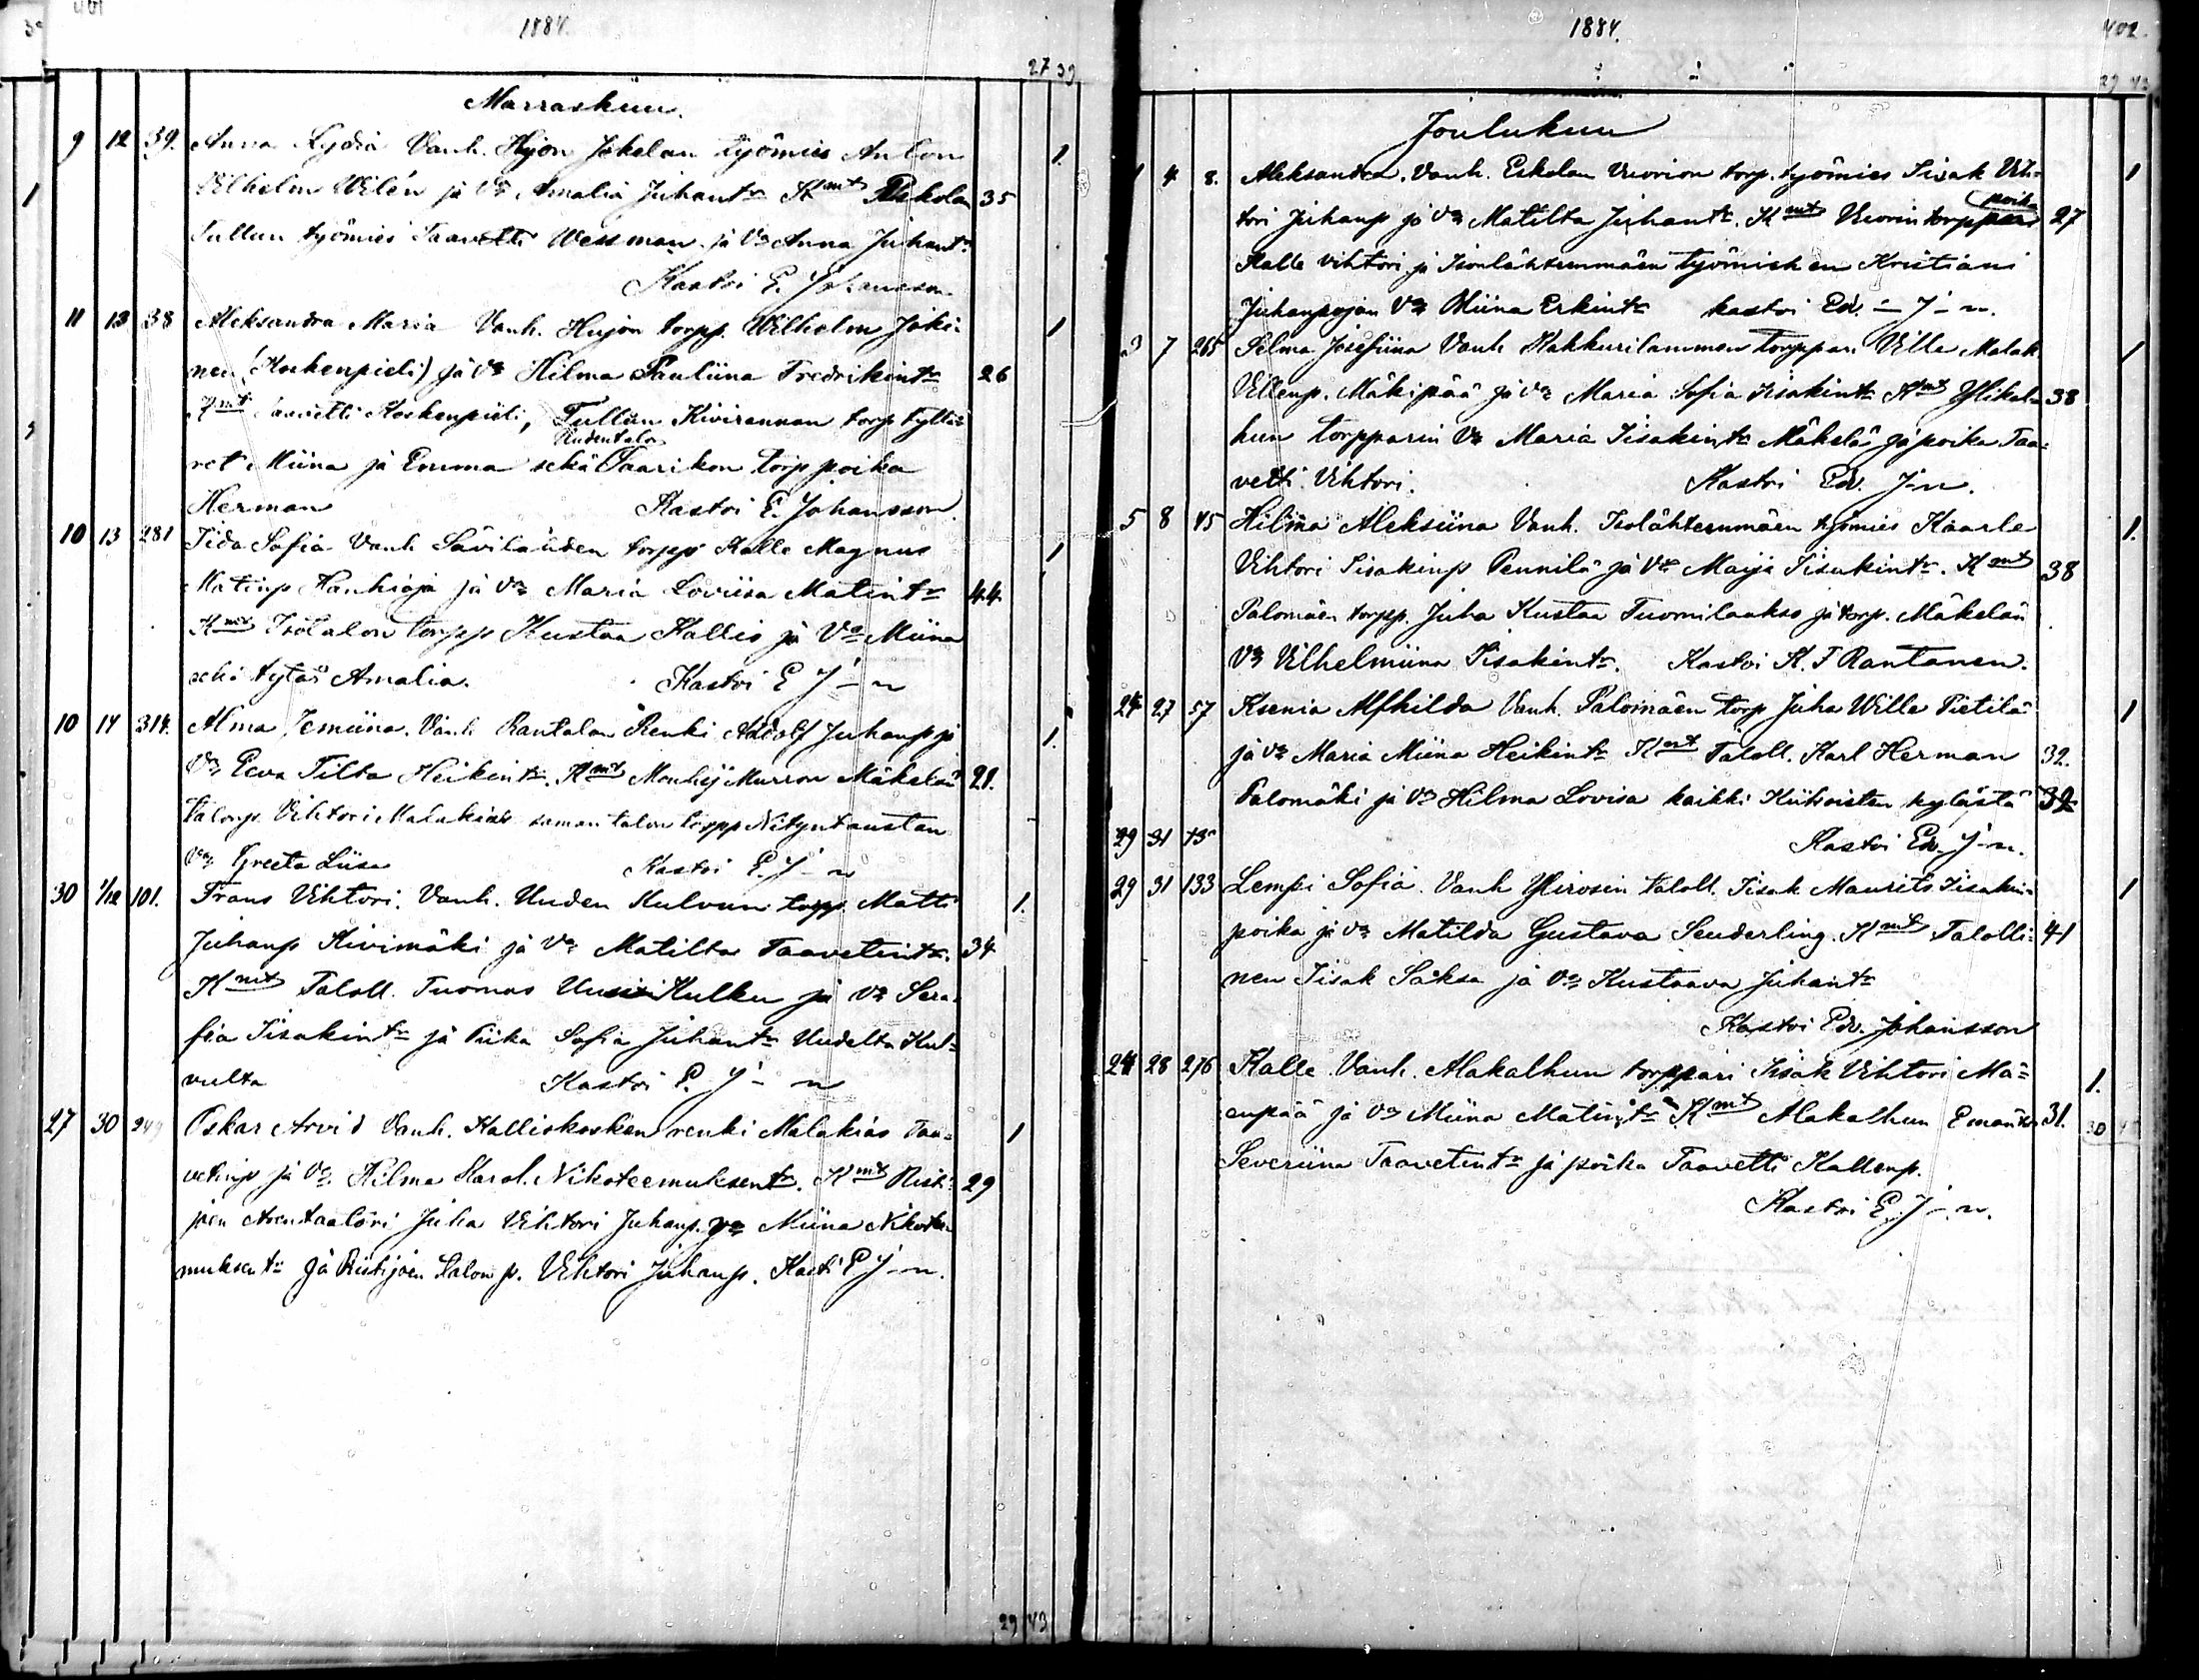 401
1884.
27 39
Marraskuu.
9 12 39. Anna Lydia Vanh. Hujon Jokelan työmies Anton 1.
Vilhelm Wilén ja Vo Amalia Juhantr Kmt Pekolan 35
Tullun työmies Taavetti Wessman ja Vo Anna Juhantr
Kastoi E. Johansson
11 13 38 Aleksandra Maria Vanh. Hujon torpp. Wilhelm Joki- 1
nen (Koskenpieli) ja Vo Hilma Pauliina Fredrikintr 26
Kmt Taavetti Koskenpieli, Tullun Kivirannan torp tyttä-
Uudentalon
ret Miina ja Emma sekä Saarikon torp poika
Herman Kastoi E. Johansson.
10 13 281 Iida Sofia Vanh. Savilahden torpp Kalle Magnus 1
Matinp Hanhioja ja Vo Maria Loviisa Matintr 44
Kmt Isotalon torpp Kustaa Kallio ja Vo Miina
sekä tytär Amalia. Kastoi E J-n
10 14 314. Alma Jemiina. Vanh. Rantalan Renki Aadolf Juhanp ja 1.
Vo Eeva Tilta Heikintr. Kmt Mouhij Murron Mäkelän 21.
talonp. Vihtori Malakias saman talon torpp Nityntaustan
Vo Greeta Liisa Kastoi E. J-n
30 1/12 101. Frans Vihtori. Vanh. Uuden Kulvun torpp. Matti 1.
Juhanp Kivimäki ja Vo Matilta Taavetintr. 34
Kmt Taloll. Tuomas Uusi Kulku ja Vo Sera-
fia Iisakintr ja Piika Sofia Juhantr Uudelta Kul-
vulta Kastoi E. J-n
27 30 249 Oskar Arvid Vanh. Kalliokosken renki Malakias Taa- 1
vetinp ja Vo. Hilma Karol. Nikoteemuksentr. Kmt Risti- 29
joen Arentaatori Juha Vihtori Juhanp. Vo Miina Nikotee
muksentr ja Ristijoen talonp. Vihtori Juhanp. Kasti E J-n.
29 43
1884. 402.
29 43
Joulukuu
1 4 8. Aleksandra. Vanh. Eskolan Vuorion torp. työmies Iisak Vih- 1
poika
tori Juhanp ja Vo Matilta Juhantr. Kmt Vuorin torppari 27
Kalle Vihtori ja Isonlähteenmäen työmiehen Kristiani
Juhanpojan Vo Miina Erkintr kastoi Ed. - J-n.
3 7 265 Selma Josefiina Vanh Kakkurilammen torppari Ville Malak 1
Villenp. Mäkipää ja Vo Maria Sofia Iisakintr Kmt Ylikal- 38
hun torpparin Vo Maria Iisakintr Mäkelä ja poika Taa-
vetti Vihtori. Kastoi Ed. J-n.
5 8 45 Hilma Aleksiina Vanh. Isolähteenmäen työmies Kaarle 1.
Vihtori Iisakinp Pennilä ja Vo Maija Iisakintr. Kmt 38
Palomäen torpp. Juha Kustaa Tuomilaakso ja torp. Mäkelän
Vo Vilhelmiina Iisakintr. Kastoi K. F Rantanen.
24 27 57 Ksenia Alfhilda Vanh. Palomäen torp Juha Wille Pietilä 1
ja Vo Maria Miina Heikintr Kmt Taloll. Karl Herman 32.
Palomäki ja Vo Hilma Lovisa kaikki Hiihoisten kylästä 32
29 31 13 Kastoi Ed. J-n.
29 31 133 Lempi Sofia. Vanh Ylirosin Taloll. Iisak Maurits Iisakin- 1
poika ja Vo Matilda Gustava Seuderling. Kmt Talolli- 41
nen Iisak Saksa ja Vo Kustaava Juhantr
Kastoi Ed. Johansson
24 28 276 Kalle. Vanh. Alakalhun torppari Iisak Vihtori Mä- 1.
enpää ja Vo Miina Matintr Kmt Alakalhun Emäntä 31. 30
Severiina Taavetintr ja poika Taavetti Kallenp.
Kastoi E. J-n.